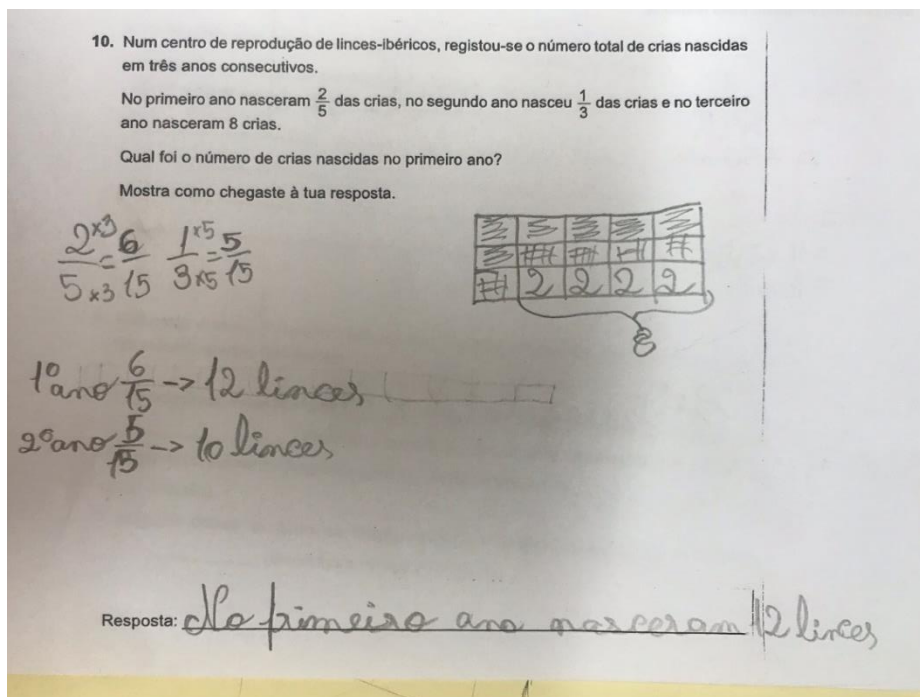 10. Num centro de reprodução de linces-ibéricos, registou-se o número total de crias nascidas
em três anos consecutivos.
No primeiro ano nasceram 2/5 das crias, no segundo ano nasceu 1/3 das crias e no terceiro
ano nasceram 8 crias.
Qual foi o número de crias nascidas no primeiro ano?
Mostra como chegaste à tua resposta.
2×3/5×3 = 6/15 1×5/3×5 = 5/15
2 2 2 2
8
1º ano 6/15 -> 12 linces
2º ano 5/15 -> 10 linces
Resposta: No primeiro ano nasceram 12 linces